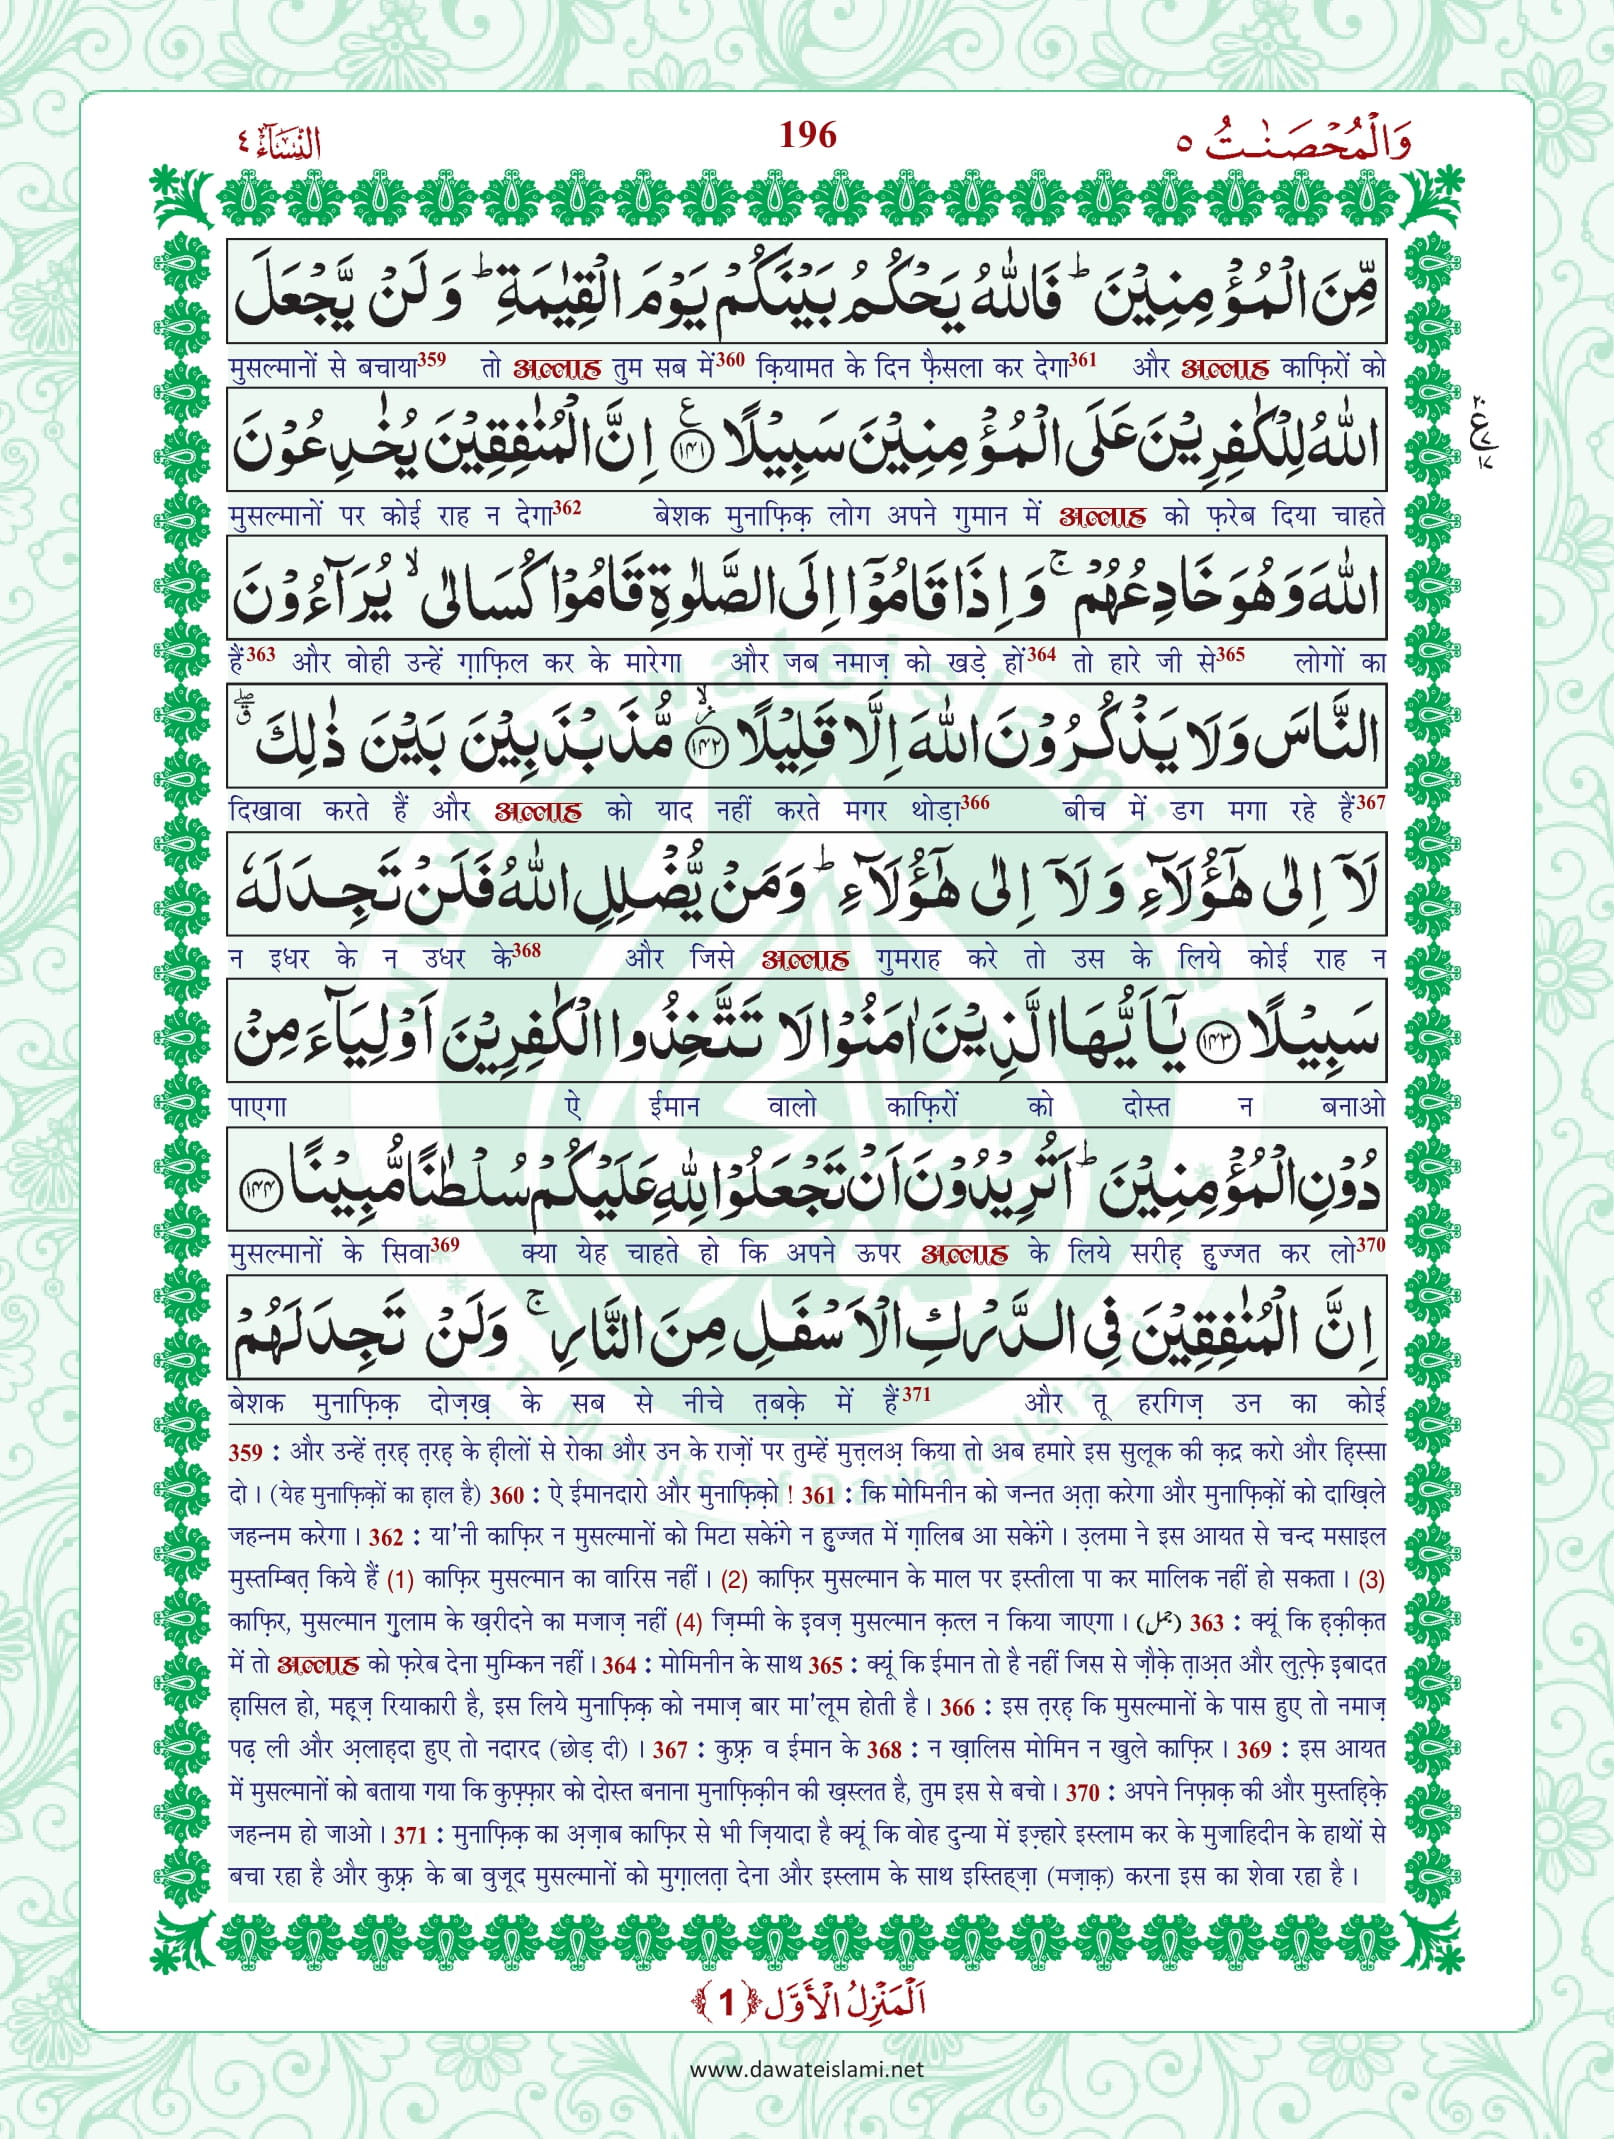 وَالْمُحْصَنٰتُ ٥ 196 النِّسَآء ٤
مِّنَ الْمُؤْمِنِيْنَ ؕ فَاللّٰهُ يَحْكُمُ بَيْنَكُمْ يَوْمَ الْقِيٰمَةِ ؕ وَلَنْ يَّجْعَلَ
मुसल्मानों से बचाया359 तो अल्लाह तुम सब में360 क़ियामत के दिन फ़ैसला कर देगा361 और अल्लाह काफ़िरों को
اللّٰهُ لِلْكٰفِرِيْنَ عَلَى الْمُؤْمِنِيْنَ سَبِيْلًا ﴿١٤١﴾ اِنَّ الْمُنٰفِقِيْنَ يُخٰدِعُوْنَ
मुसल्मानों पर कोई राह न देगा362 बेशक मुनाफ़िक़ लोग अपने गुमान में अल्लाह को फ़रेब दिया चाहते
اللّٰهَ وَهُوَ خَادِعُهُمْ ۚ وَاِذَا قَامُوْۤا اِلَى الصَّلٰوةِ قَامُوْا كُسَالٰى ۙ يُرَآءُوْنَ
हैं363 और वोही उन्हें ग़ाफ़िल कर के मारेगा और जब नमाज़ को खड़े हों364 तो हारे जी से365 लोगों का
النَّاسَ وَلَا يَذْكُرُوْنَ اللّٰهَ اِلَّا قَلِيْلًا ﴿١٤٢﴾ مُّذَبْذَبِيْنَ بَيْنَ ذٰلِكَ ۖ ق
दिखावा करते हैं और अल्लाह को याद नहीं करते मगर थोड़ा366 बीच में डग मगा रहे हैं367
لَاۤ اِلٰى هٰۤؤُلَآءِ وَلَاۤ اِلٰى هٰۤؤُلَآءِ ؕ وَمَنْ يُّضْلِلِ اللّٰهُ فَلَنْ تَجِدَ لَهٗ
न इधर के न उधर के368 और जिसे अल्लाह गुमराह करे तो उस के लिये कोई राह न
سَبِيْلًا ﴿١٤٣﴾ يٰۤاَيُّهَا الَّذِيْنَ اٰمَنُوْا لَا تَتَّخِذُوا الْكٰفِرِيْنَ اَوْلِيَآءَ مِنْ
पाएगा ऐ ईमान वालो काफ़िरों को दोस्त न बनाओ
دُوْنِ الْمُؤْمِنِيْنَ ؕ اَتُرِيْدُوْنَ اَنْ تَجْعَلُوْا لِلّٰهِ عَلَيْكُمْ سُلْطٰنًا مُّبِيْنًا ﴿١٤٤﴾
मुसल्मानों के सिवा369 क्या येह चाहते हो कि अपने ऊपर अल्लाह के लिये सरीह़ हुज्जत कर लो370
اِنَّ الْمُنٰفِقِيْنَ فِى الدَّرْكِ الْاَسْفَلِ مِنَ النَّارِ ۚ وَلَنْ تَجِدَ لَهُمْ
बेशक मुनाफ़िक़ दोज़ख़ के सब से नीचे त़बक़े में हैं371 और तू हरगिज़ उन का कोई
359 : और उन्हें त़रह़ त़रह़ के ह़ीलों से रोका और उन के राज़ों पर तुम्हें मुत़्त़लअ़ किया तो अब हमारे इस सुलूक की क़द्र करो और ह़िस्सा
दो । (येह मुनाफ़िक़ों का ह़ाल है) 360 : ऐ ईमानदारो और मुनाफ़िक़ो ! 361 : कि मोमिनीन को जन्नत अ़त़ा करेगा और मुनाफ़िक़ों को दाख़िले
जहन्नम करेगा । 362 : या'नी काफ़िर न मुसल्मानों को मिटा सकेंगे न हुज्जत में ग़ालिब आ सकेंगे । उ़लमा ने इस आयत से चन्द मसाइल
मुस्तम्बित़ किये हैं (1) काफ़िर मुसल्मान का वारिस नहीं । (2) काफ़िर मुसल्मान के माल पर इस्तीला पा कर मालिक नहीं हो सकता । (3)
काफ़िर, मुसल्मान ग़ुलाम के ख़रीदने का मजाज़ नहीं (4) ज़िम्मी के इ़वज़ मुसल्मान क़त्ल न किया जाएगा । (جمل) 363 : क्यूं कि ह़क़ीक़त
में तो अल्लाह को फ़रेब देना मुम्किन नहीं । 364 : मोमिनीन के साथ 365 : क्यूं कि ईमान तो है नहीं जिस से ज़ौक़े त़ाअ़त और लुत़्फ़े इ़बादत
ह़ासिल हो, मह़्ज़ रियाकारी है, इस लिये मुनाफ़िक़ को नमाज़ बार मा'लूम होती है । 366 : इस त़रह़ कि मुसल्मानों के पास हुए तो नमाज़
पढ़ ली और अ़लाह़दा हुए तो नदारद (छोड़ दी) । 367 : कुफ़्र व ईमान के 368 : न ख़ालिस मोमिन न खुले काफ़िर । 369 : इस आयत
में मुसल्मानों को बताया गया कि कुफ़्फ़ार को दोस्त बनाना मुनाफ़िक़ीन की ख़स्लत है, तुम इस से बचो । 370 : अपने निफ़ाक़ की और मुस्तह़िक़े
जहन्नम हो जाओ । 371 : मुनाफ़िक़ का अ़ज़ाब काफ़िर से भी ज़ियादा है क्यूं कि वोह दुन्या में इज़्हारे इस्लाम कर के मुजाहिदीन के हाथों से
बचा रहा है और कुफ़्र के बा वुजूद मुसल्मानों को मुग़ालत़ा देना और इस्लाम के साथ इस्तिह्ज़ा (मज़ाक़) करना इस का शेवा रहा है ।
اَلْمَنْزِلُ الْاَوَّل ﴿1﴾
www.dawateislami.net